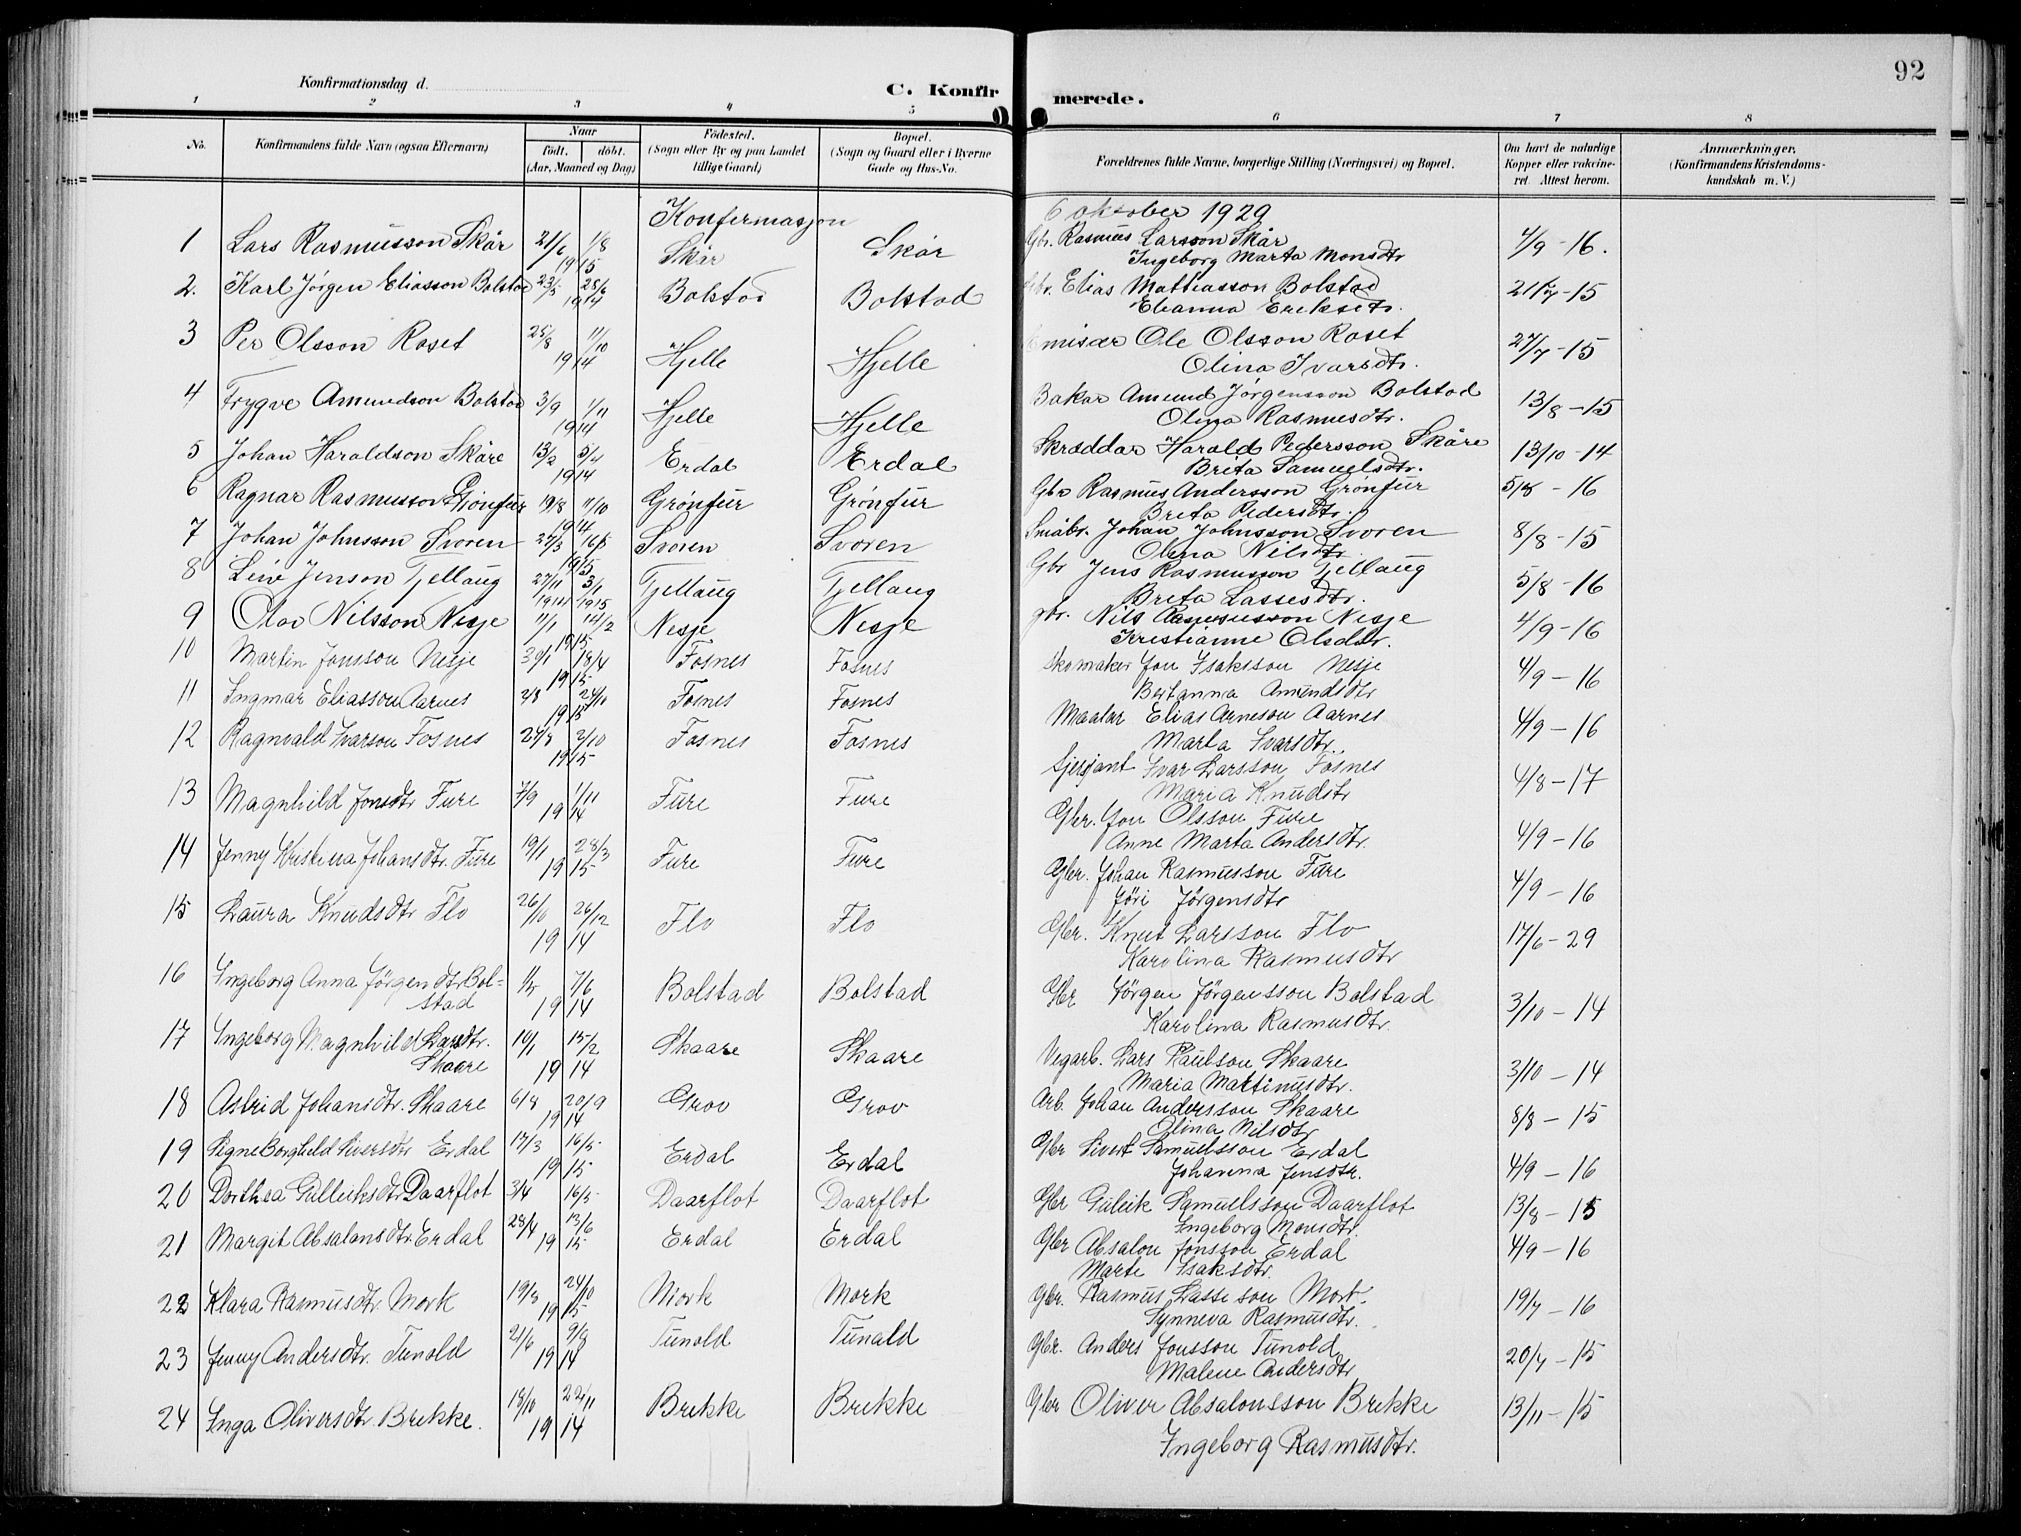 92
Konfirmationsdag d.
C. Konfirmerede.
1 2 3 4 5 6 7 8
No. Konfirmandens fulde Navn (ogsaa Efternavn) Naar födt. döbt. (Aar, Maaned og Dag) Födested. (Sogn eller By og paa Landet tillige Gaard) Bopæl. (Sogn og Gaard eller i Byerne Gade og Hus-No. Forældrenes fulde Navne, borgerlige Stilling (Næringsvei) og Bopæl. Om havt de naturlige Kopper eller vakcineret. Attest herom. Anmærkninger, (Konfirmandens Kristendomskundskab m. V.)
Konfermasjon 6 oktober 1929
1 Lars Rasmusson Skår 1/8 1915 Skår Skår Gbr. Rasmus Larsson Skår 4/9-16.
Ingeborg Marta Monsdtr
2. Karl Jørgen Eliasson Bolstad 1914 Bolstad Bolstad Gbr. Elias Mattiasson Bolstad 21/7-15
Elianna Eriksdtr.
3 Per Olsson Roset 25/8 11/10 1914 Hjelle Hjelle Emisær Ole Olsson Roset 27/7-15
Olina Ivarsdtr.
4 Trygve Amundson Bolstad 3/9 1/11 1914 Hjelle Hjelle Bakar Amund Jørgensson Bolstad 13/8-15
Olina Rasmusdtr.
5 Johan Haraldson Skåre 13/2 5/4 1914 Erdal Erdal Skræddar Harald Pedersson Skåre 13/10-14
Brita Samuelsdtr.
6 Ragnar Rasmusson Grönfur 19/8 11/10 1914 Grönfur Grönfur Gbr Rasmus Andersson Grönfur 5/8-16
Brita Pedersdtr.
7 Johan Johnsson Svoren 1915 Svoren Svoren Småbr. Johan Johnsson Svoren 8/8-15
Olina Nilsdtr
8 Jenson Tjellaug 27/11 1914 3/1 1915 Tjellaug Tjellaug Gbr Jens Rasmusson Tjellaug 5/8-16
Brita Lassesdtr.
9 Olav Nilsson Nesje 11/1 14/2 1915 Nesje Nesje gbr. Nils Rasmusson Nesje 4/9-16
Kristianne Olsdtr.
10 Martin Jonsson Nesje 30/1 18/4 1915 Fosnes Fosnes Skomaker Jon Isaksson Nesje 4/9-16
Bertanna Amundsdtr
11 Ingmar Eliasson Aarnes 2/8 24/10 1915 Fosnes Fosnes Maalar Elias Arneson Aarnes 4/9-16
Marta Ivarsdtr.
12 Ragnvald Ivarson Fosnes 2/10 1915 Fosnes Fosnes Sjersjant Ivar Larsson Fosnes 4/8-17
Maria Knudsdtr
13 Magnhild Jonsdtr Fure 7/9 1/11 1914 Fure Fure Gbr. Jon Olsson Fure 4/9-16
Anne Marta Andersdtr.
14 Jenny Kristina Johansdtr. Fure 19/1 28/3 1915 Fure Fure Gbr. Johan Rasmusson Fure 4/9-16
Jøri Jørgensdtr
15 Laura Knudsdtr Flo 26/10 26/12 1914 Flo Flo Gbr. Knut Larsson Flo 17/6-29
Karolina Rasmusdtr
16 Ingeborg Anna Jørgendtr Bol- 1/5 7/6 1914 Bolstad Bolstad Gbr Jørgen Jørgensson Bolstad 3/10-14
stad Karolina Rasmusdtr.
17 Ingeborg Magnhild Larsdtr. 10/1 15/2 1914 Skaare Skaare Vegarb. Lars Paulson Skaare 3/10-14
Skaare Maria Mattinusdtr.
18 Astrid Johansdtr. Skaare 6/8 20/9 1914 Grov Grov Arb. Johan Andersson Skaare 8/8-15
Olina Nilsdtr
19 Signe Borghild Siversdtr Erdal 17/3 16/5 1915 Erdal Erdal Gbr Sivert Samuelsson Erdal 4/9-16
Johanna Jensdtr.
20 Dorthea Gulleiksdtr Daarflot 3/4 16/5 Daarflot Daarflot Gbr Guleik Samuelsson Daarflot 13/8-15
Ingeborg Monsdtr.
21 Margit Absalonsdtr Erdal 28/4 13/6 1915 Erdal Erdal Gbr Absalon Jonsson Erdal 4/9-16
Marte Isaksdtr.
22 Klara Rasmusdtr. Mork 19/8 24/10 1915 Mork Mork Gbr. Rasmus Lasseson Mork 19/7-16
Synneva Rasmusdtr.
23 Jenny Andersdtr. Tunold 21/6 9/8 1914 Tunold Tunald Gbr. Anders Jonsson Tunold 20/7-15
Malene Andersdtr
24 Inga Oliversdtr. Brekke. 18/10 22/11 1914 Brekke Brekke Gbr Oliver Absalonsson Brekke 13/11-15
Ingeborg Rasmusdtr.